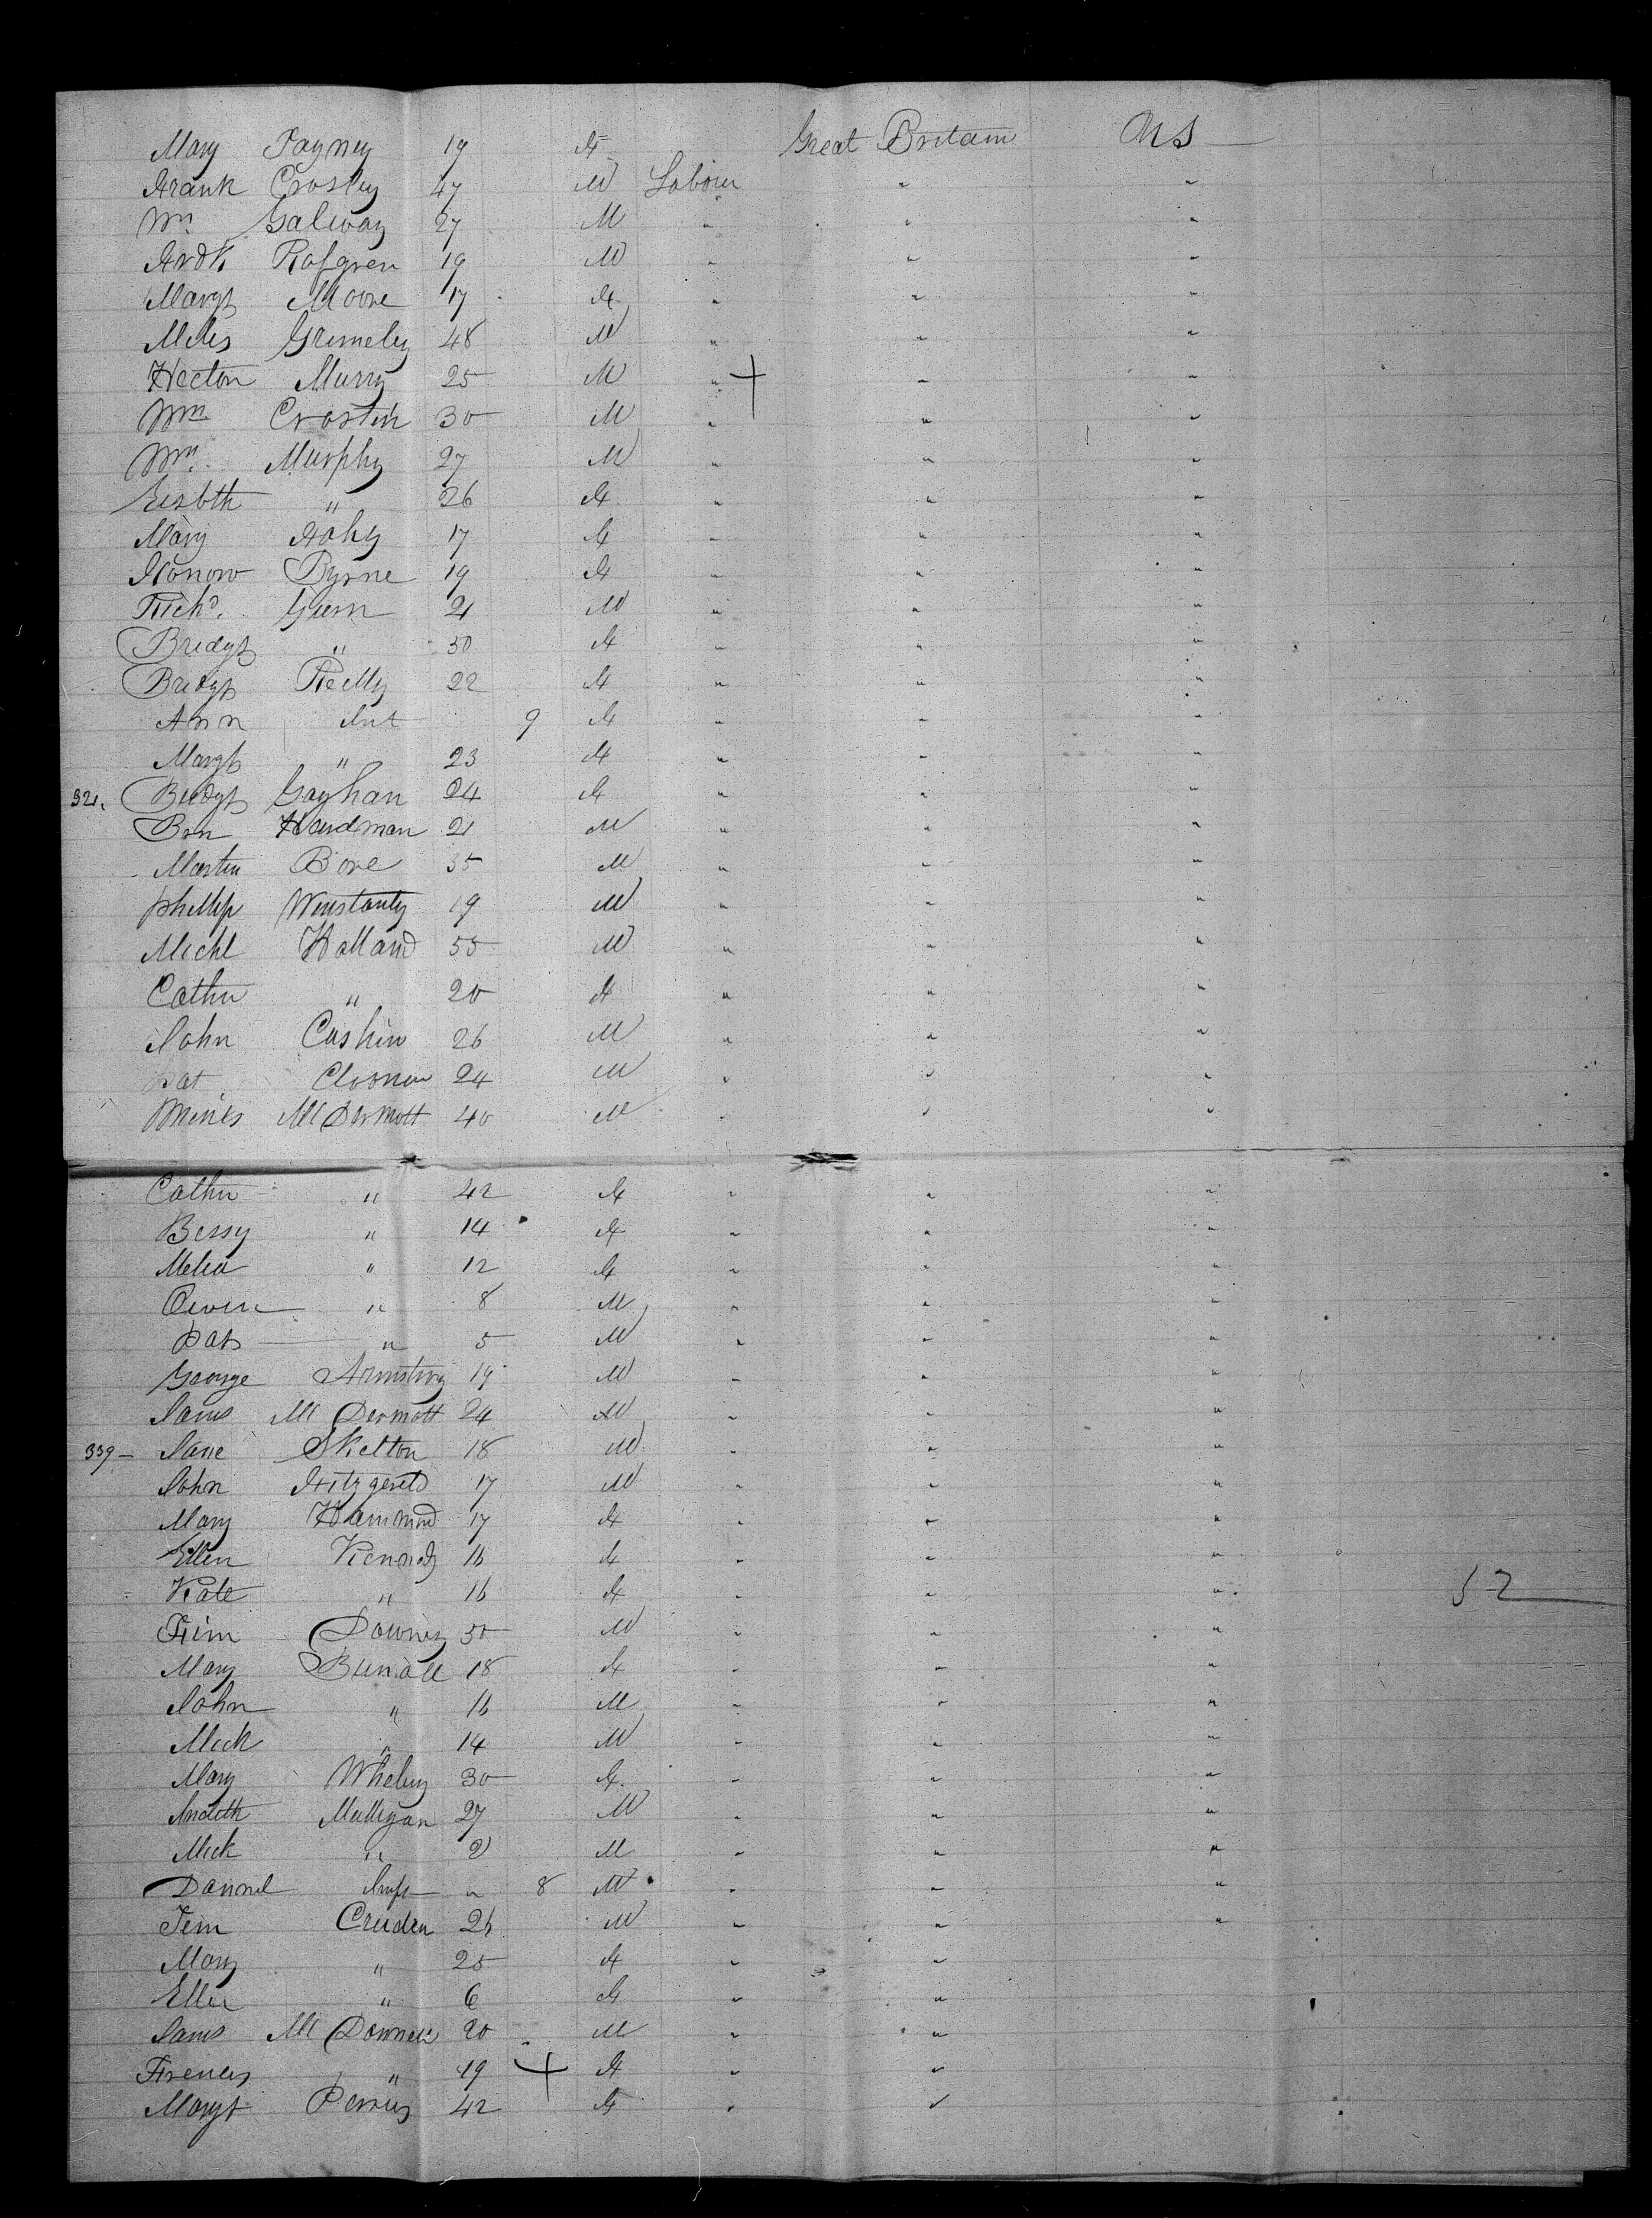 Mary Fayney 19 F Great Britain U S
Frank Crosley 47 M Labour " "
Wm Galway 27 M " " "
Fredk 19 M " " "
Margt Moore 17 F " " "
Miles Grimeley 48 M " " "
Hector Murry 25 M " + " "
Wm Crostin 30 M " " "
Wm Murphy 27 M " " "
Eisbth " 26 F " " "
Mary Fahy 17 F " " "
Honow Byrne 19 F " " "
Richd 21 M " " "
Bridgt " 30 F " " "
Bridgt Reilly 22 F " " "
Ann Inft 9 F " " "
Margt " 23 F " " "
321. Bridgt Gayhan 24 F " " "
Ben Hardman 21 M " " "
Martin Bore 35 M " " "
Phillip Winstanly 19 M " " "
Michl Holland 55 M " " "
Cathn " 20 F " " "
John Cashin 26 M " " "
Pat 24 M " " "
McDermott 40 M " " "
Cathn " 42 F " " "
Bessy " 14 F " " "
Melia " 12 F " " "
Owen " 8 M " " "
Pat " 5 M " " "
George Armstrong 19 M " " "
James McDermott 24 M " " "
339 - Jane Skelton 18 M " " "
John Fitzgereld 17 M " " "
Mary Hammond 17 F " " "
Ellen Kennedy 16 F " " "
Kate " 16 F " " " 52
Downey 50 M " " "
Mary 18 F " " "
John " 16 M " " "
Mick " 14 M " " "
Mary Wheley 30 F " " "
Mulligan 27 M " " "
Mick " 2 M " " "
Danniel Inft " 8 M " " "
Jem Cruden 26 M " " "
Mary " 25 F " "
Ellen " 6 F " "
James McDonnell 20 M " "
Frences " 19 + F " "
Margt 42 F " "